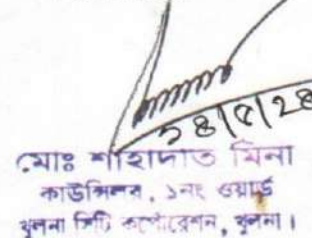 ২৪/৫/২৪
মোঃ শাহাদাত মিনা
কাউন্সিলর, ১নং ওয়ার্ড
খুলনা সিটি কর্পোরেশন, খুলনা।